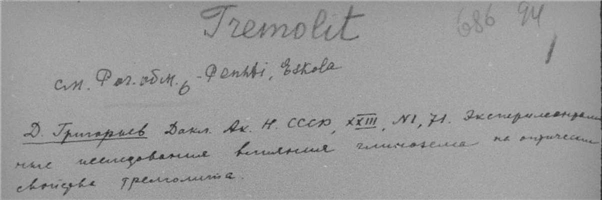 Tremolit
686 94
1
см. Рог. обм.
Д. Григорьев Докл. Ак. Н. СССР, XXIII, N1, 71. Эксперименталь
ные исследования влияния глинозема на оптические
свойства тремолита.